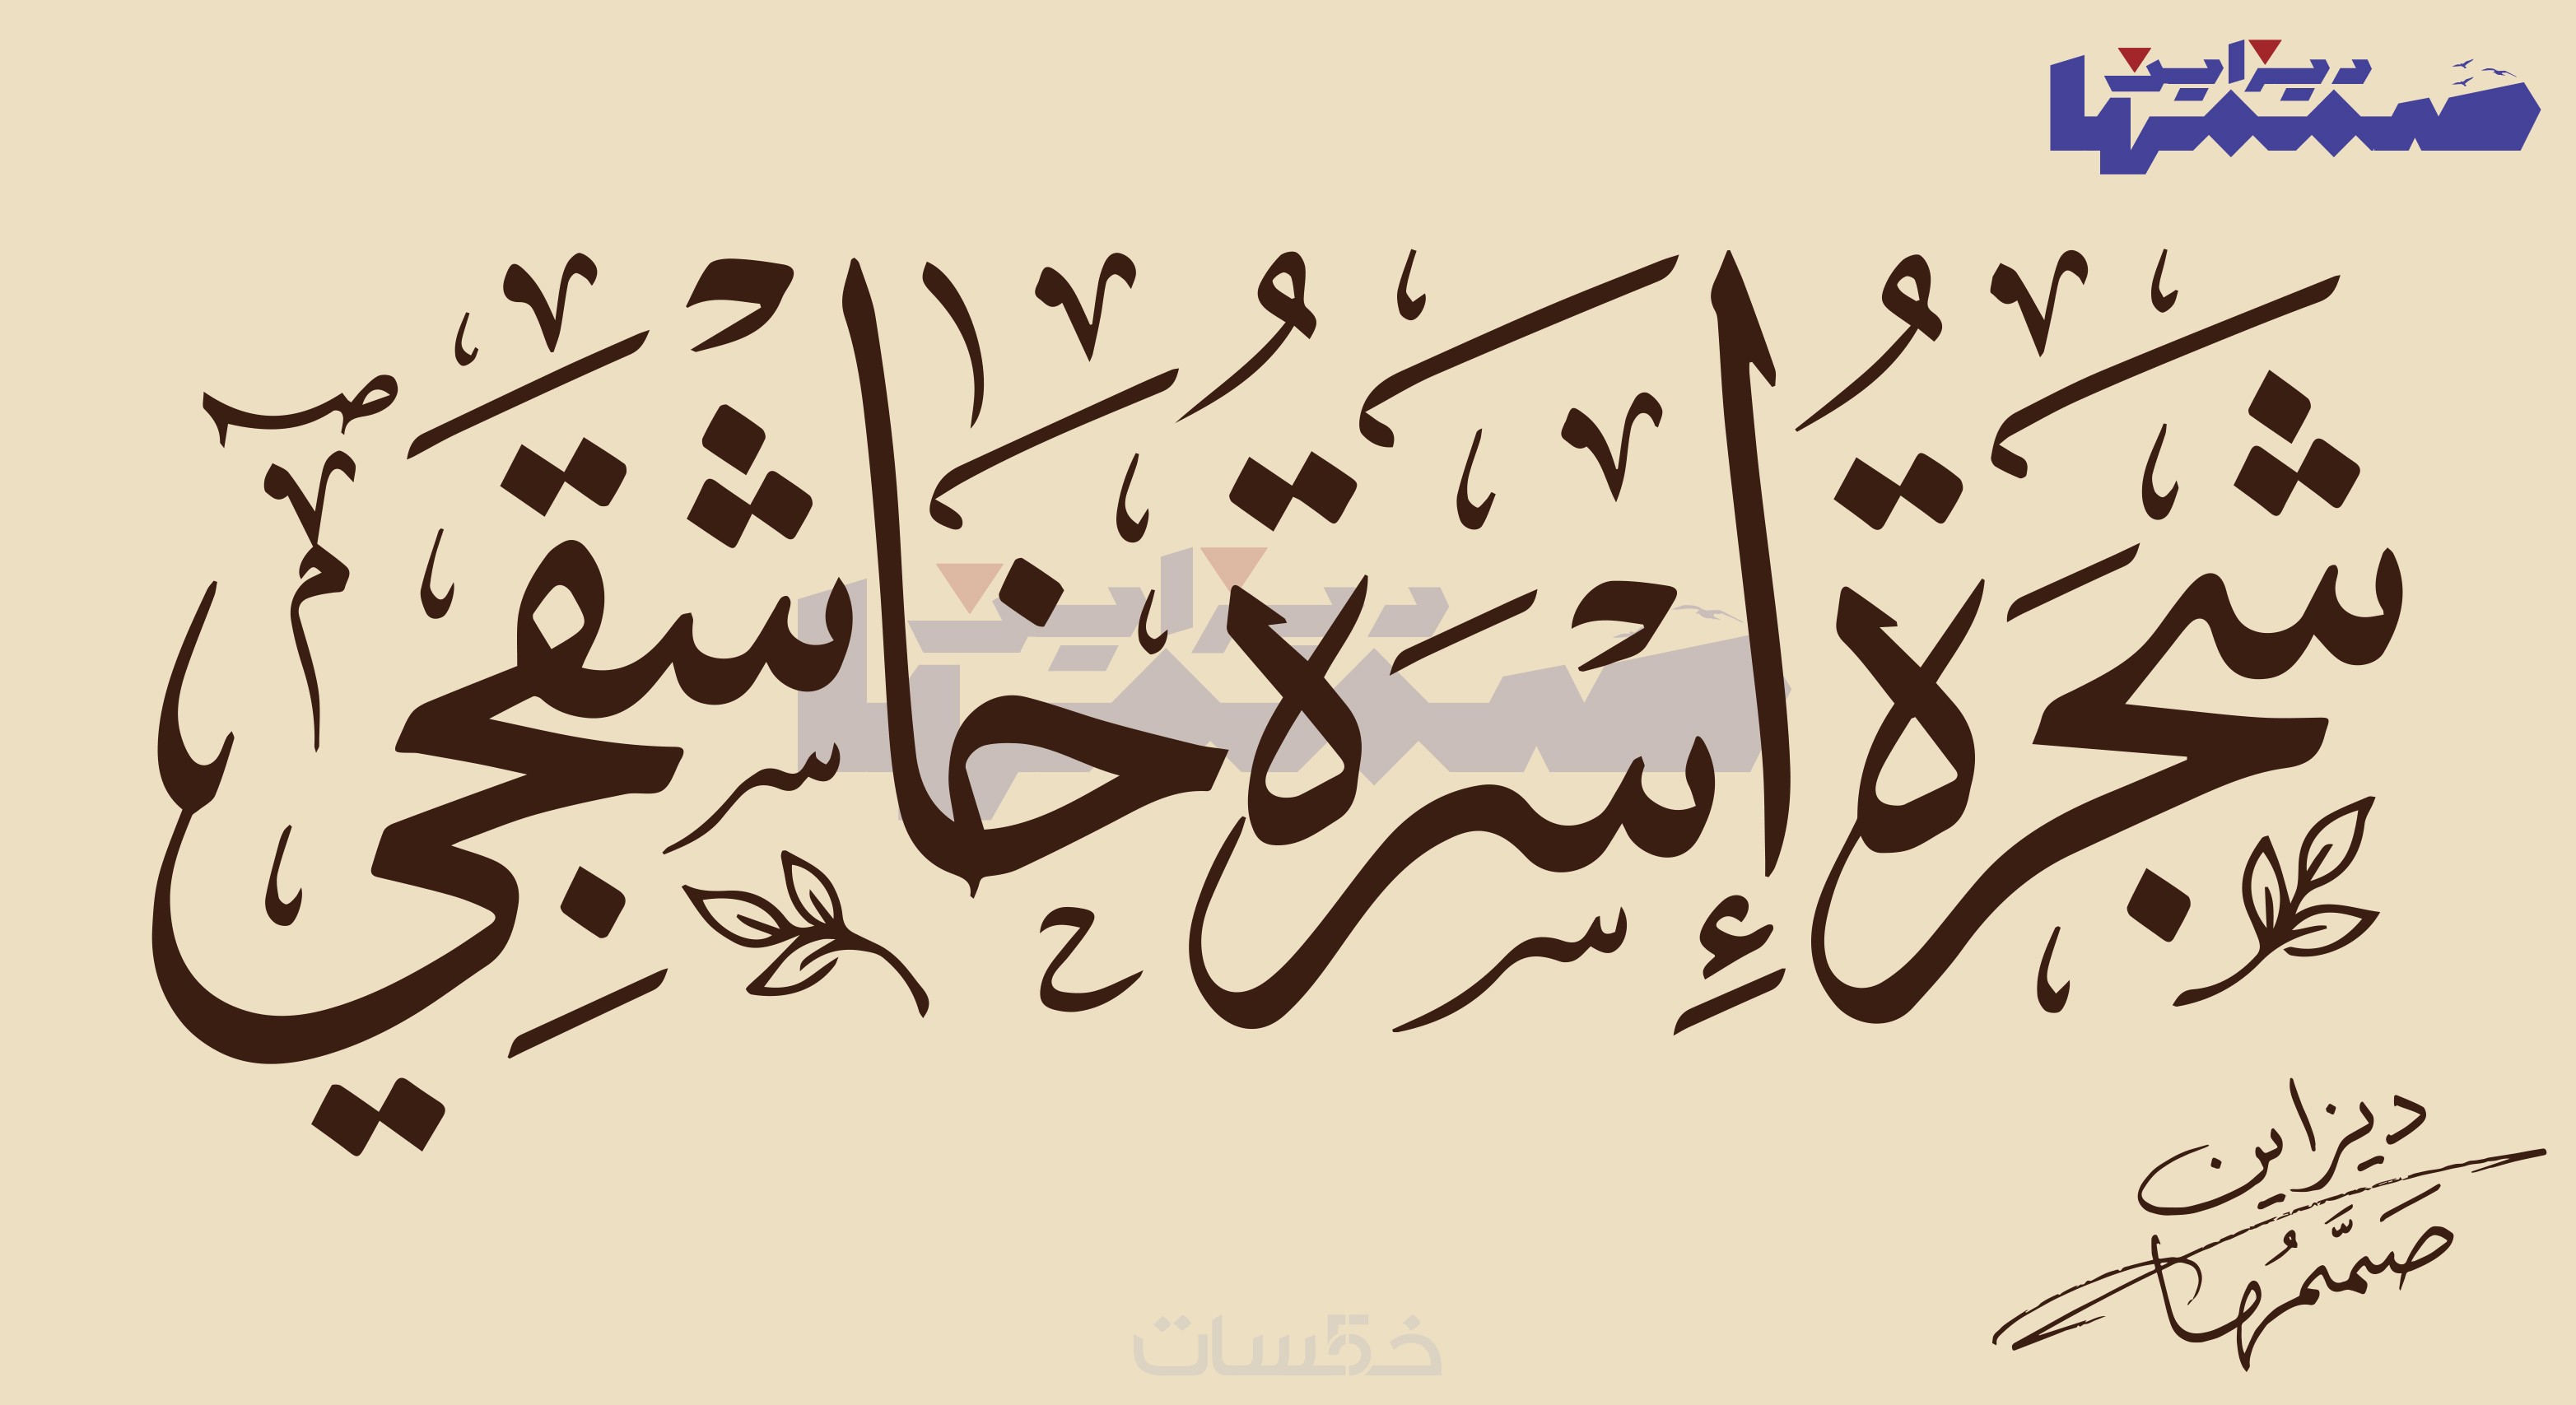 ديزاين
صممها
شجرة إسرة خاشقجي
ديزاين
صممها
ديزاين
صَمَّمُها
خمسات